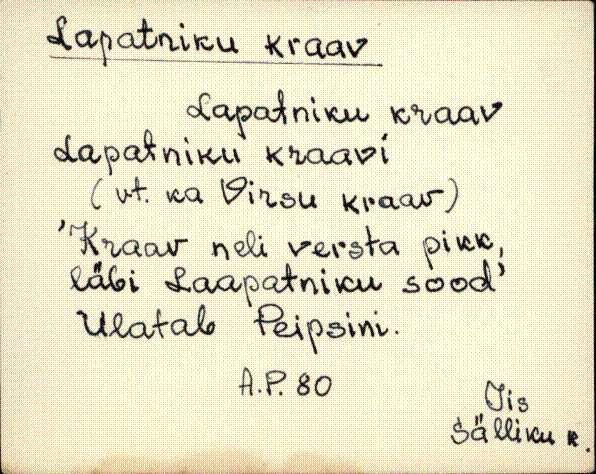 Lapatniku kraav
Lapatniku kraav
Lapatniku kraavi
(vt. ka Virsu kraav)
'Kraav neli versta pikk,
läbi Laapatniku sood'
Ulatab Peipsini.
A.P. 80
Iis
Sälliku k.